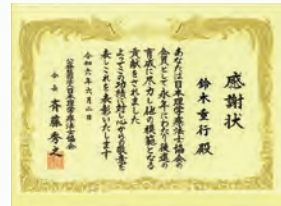 感謝状
鈴木重行 殿
あなたは日本理学療法士協会の
会員として永年にわたり後進の
育成に尽力し後の模範となる
貢献をされました
よってこの功績に対し心からの敬意を
表しこれを表彰いたします
令和六年六月二日
公益社団法人日本理学療法士協会
会長 斉藤秀之